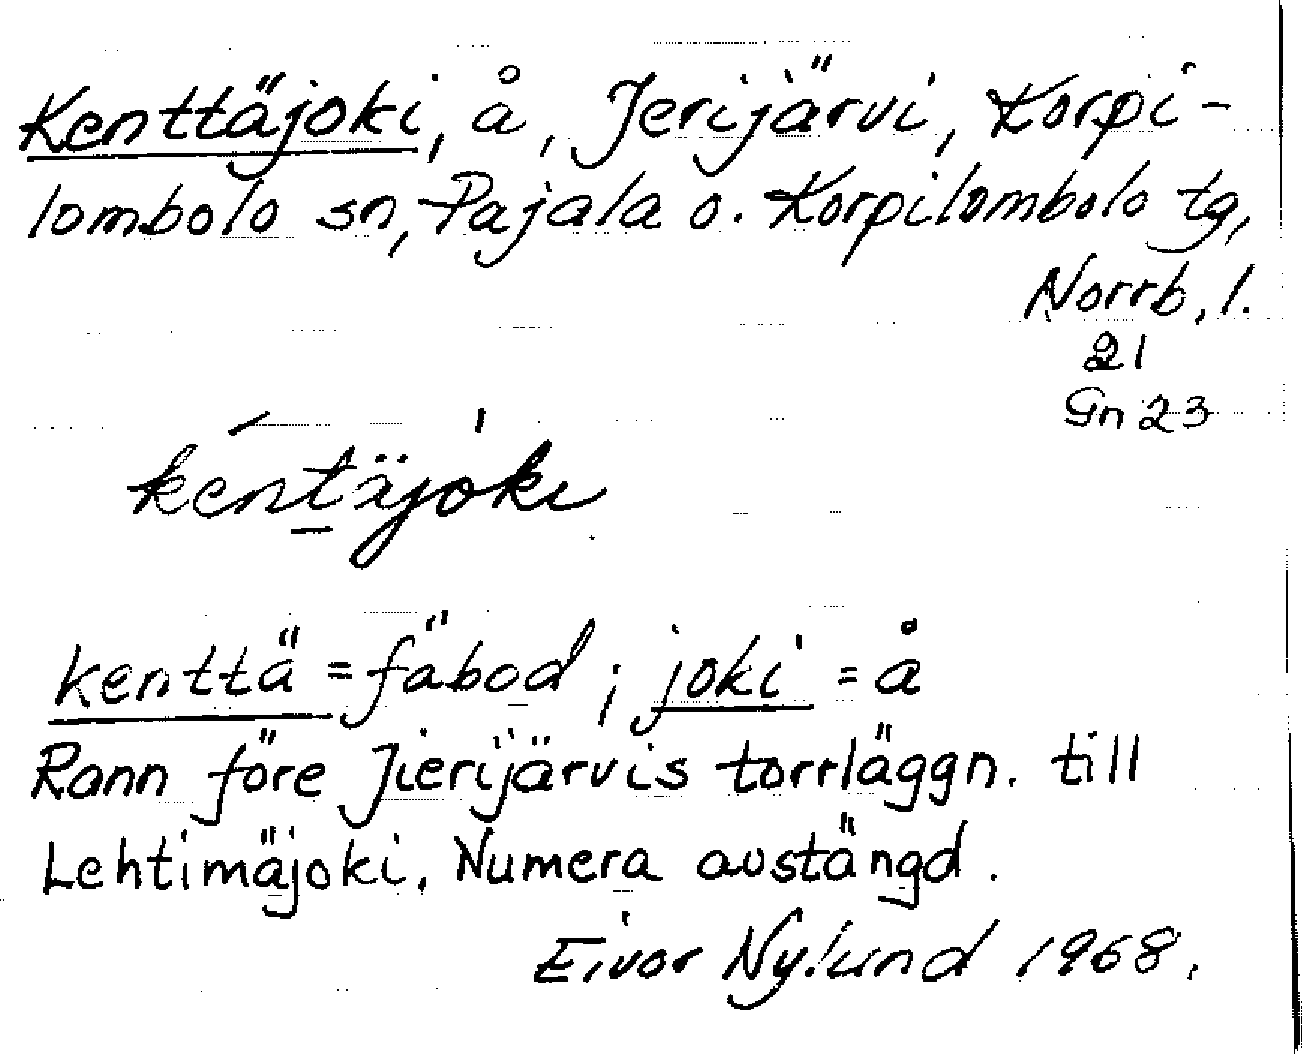 Kenttäjoki, å, Jerijärvi, Korpi-
lombolo sn, Pajala o. Korpilombolo tg,
Norrb. l.
21
Gn 23
kenṯäjoki
kenttä = fäbod; joki = å
Rann före Jierijärvis torrläggn. till
Lehtimäjoki. Numera avstängd.
Eivor Nylund 1968.